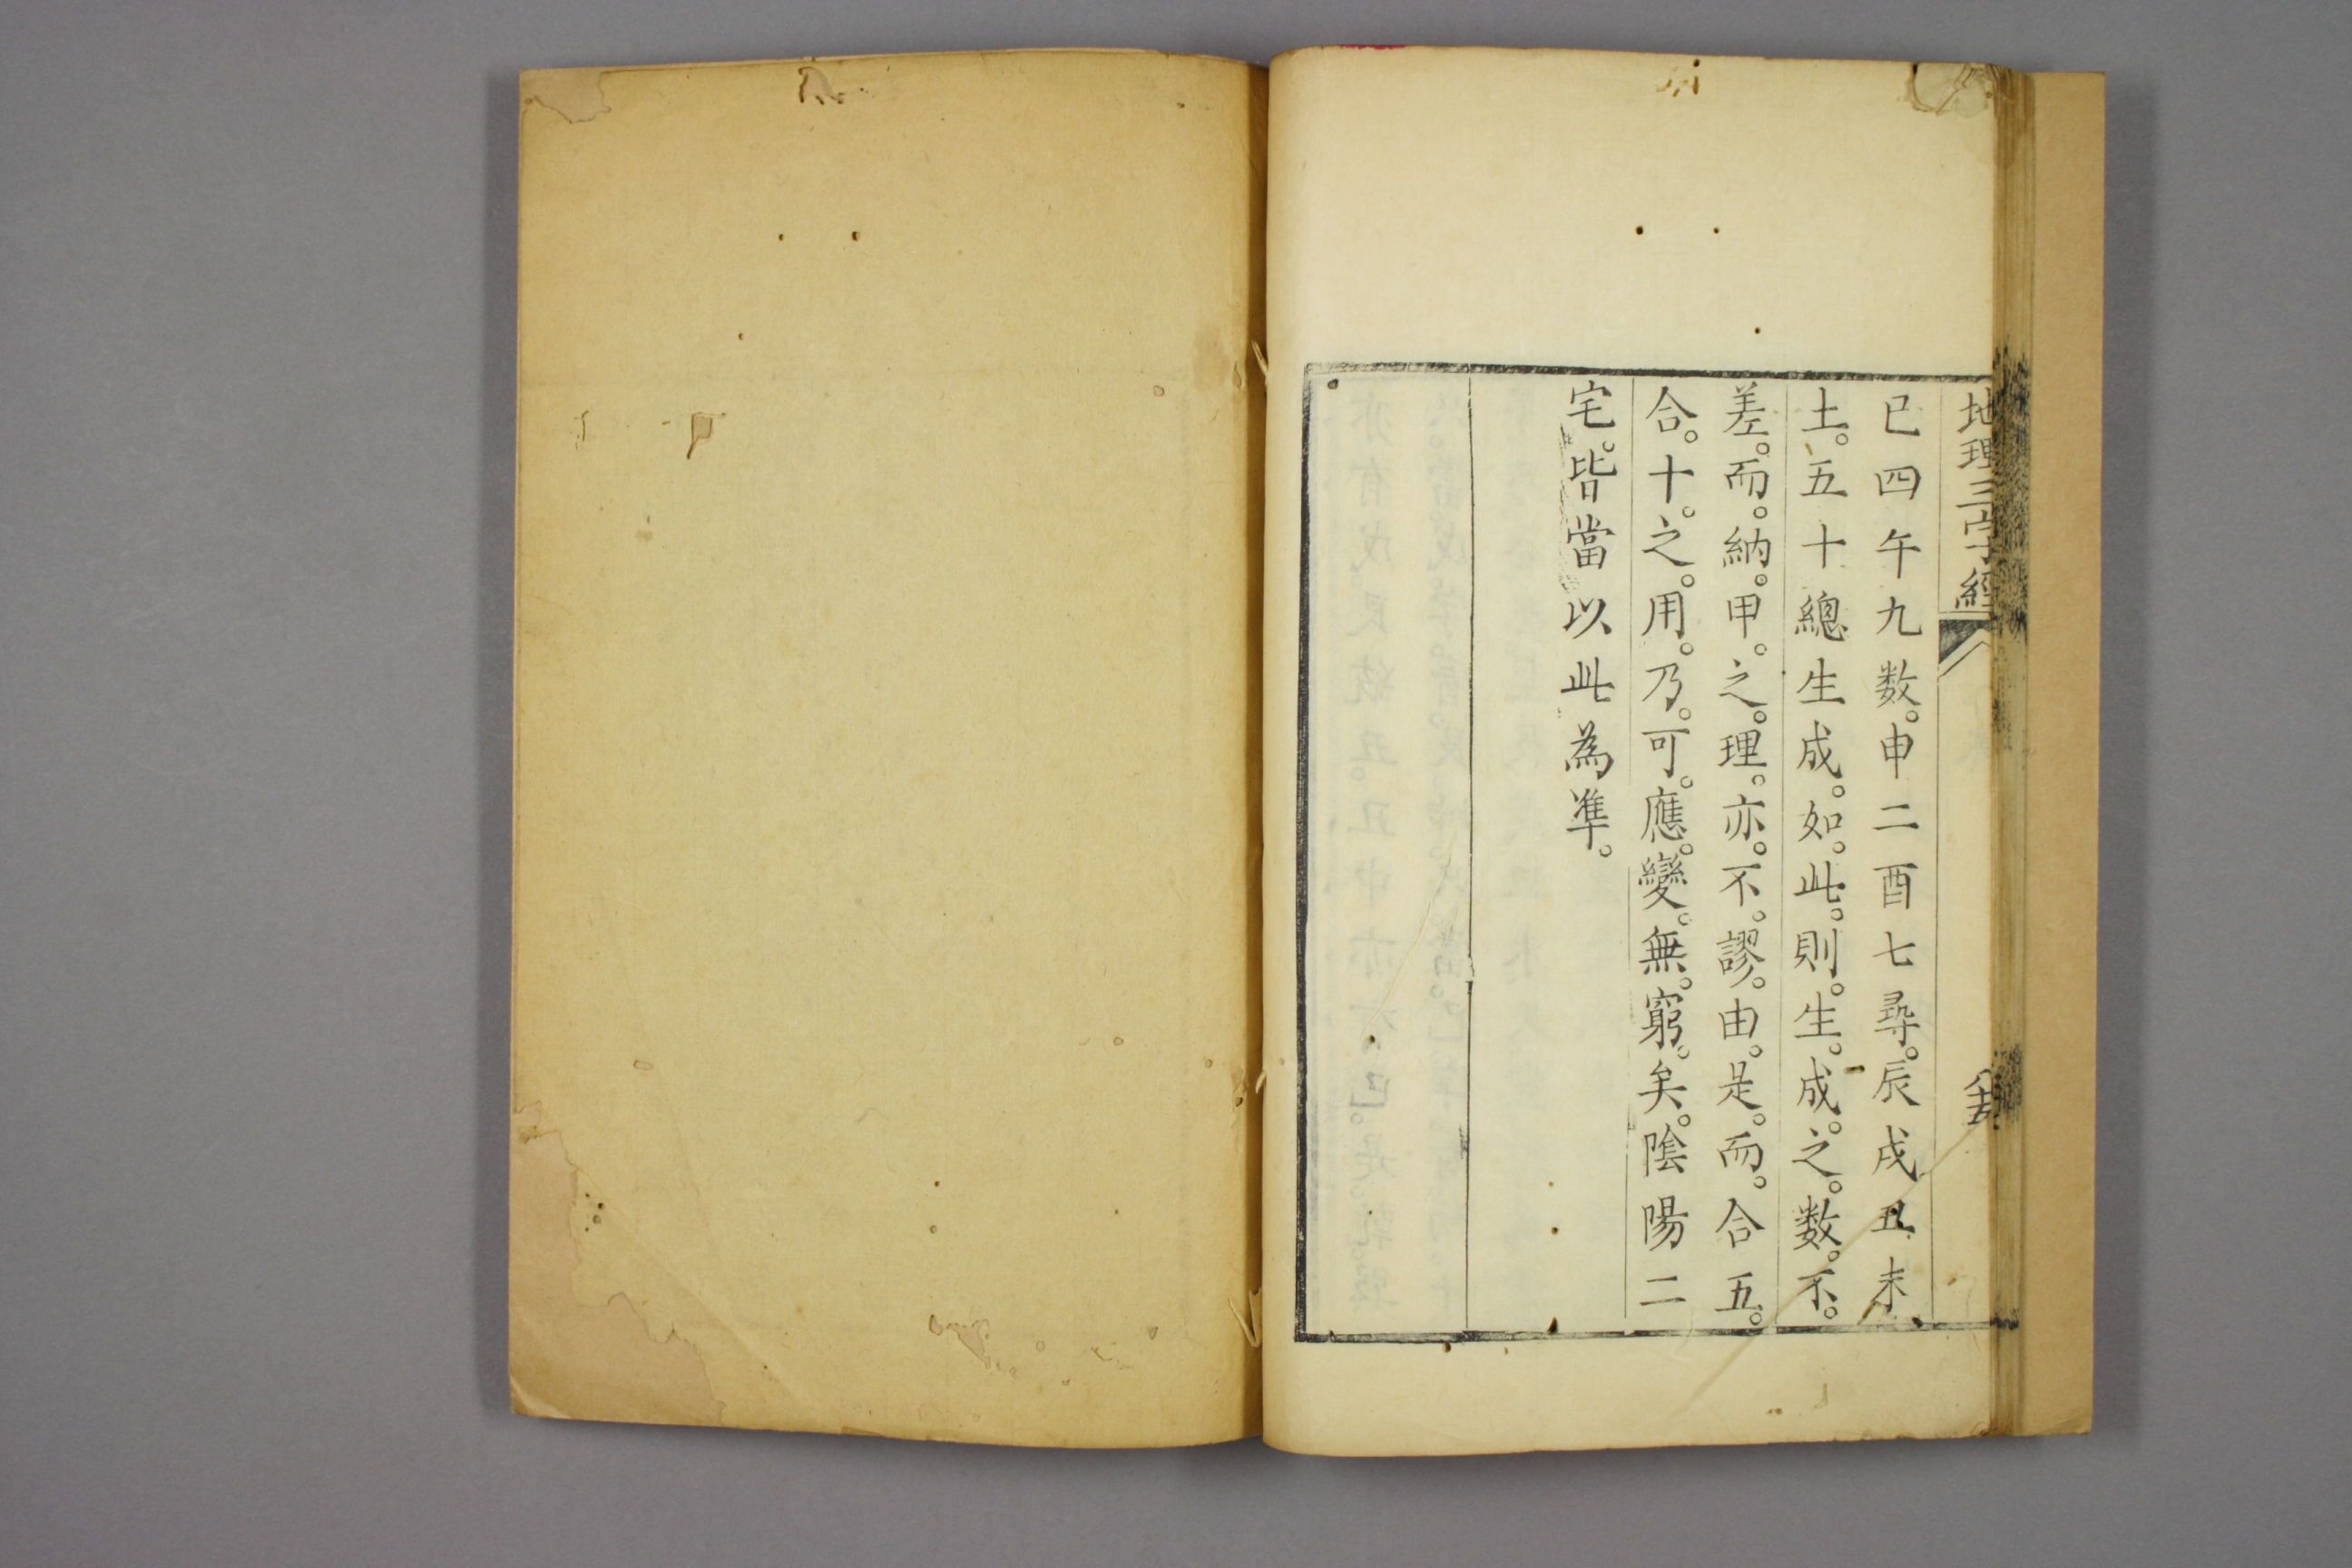 地理三字經
巳四午九数。申二酉七尋。辰戌丑未
土。五十總生成。如。此。則。生。成。之。数。不。
差。而。納。甲。之。理。亦。不。謬。由。是。而。合五。
合。十。之。用。乃。可。應。變。無。窮。矣。陰陽二
宅。皆當以此為準。